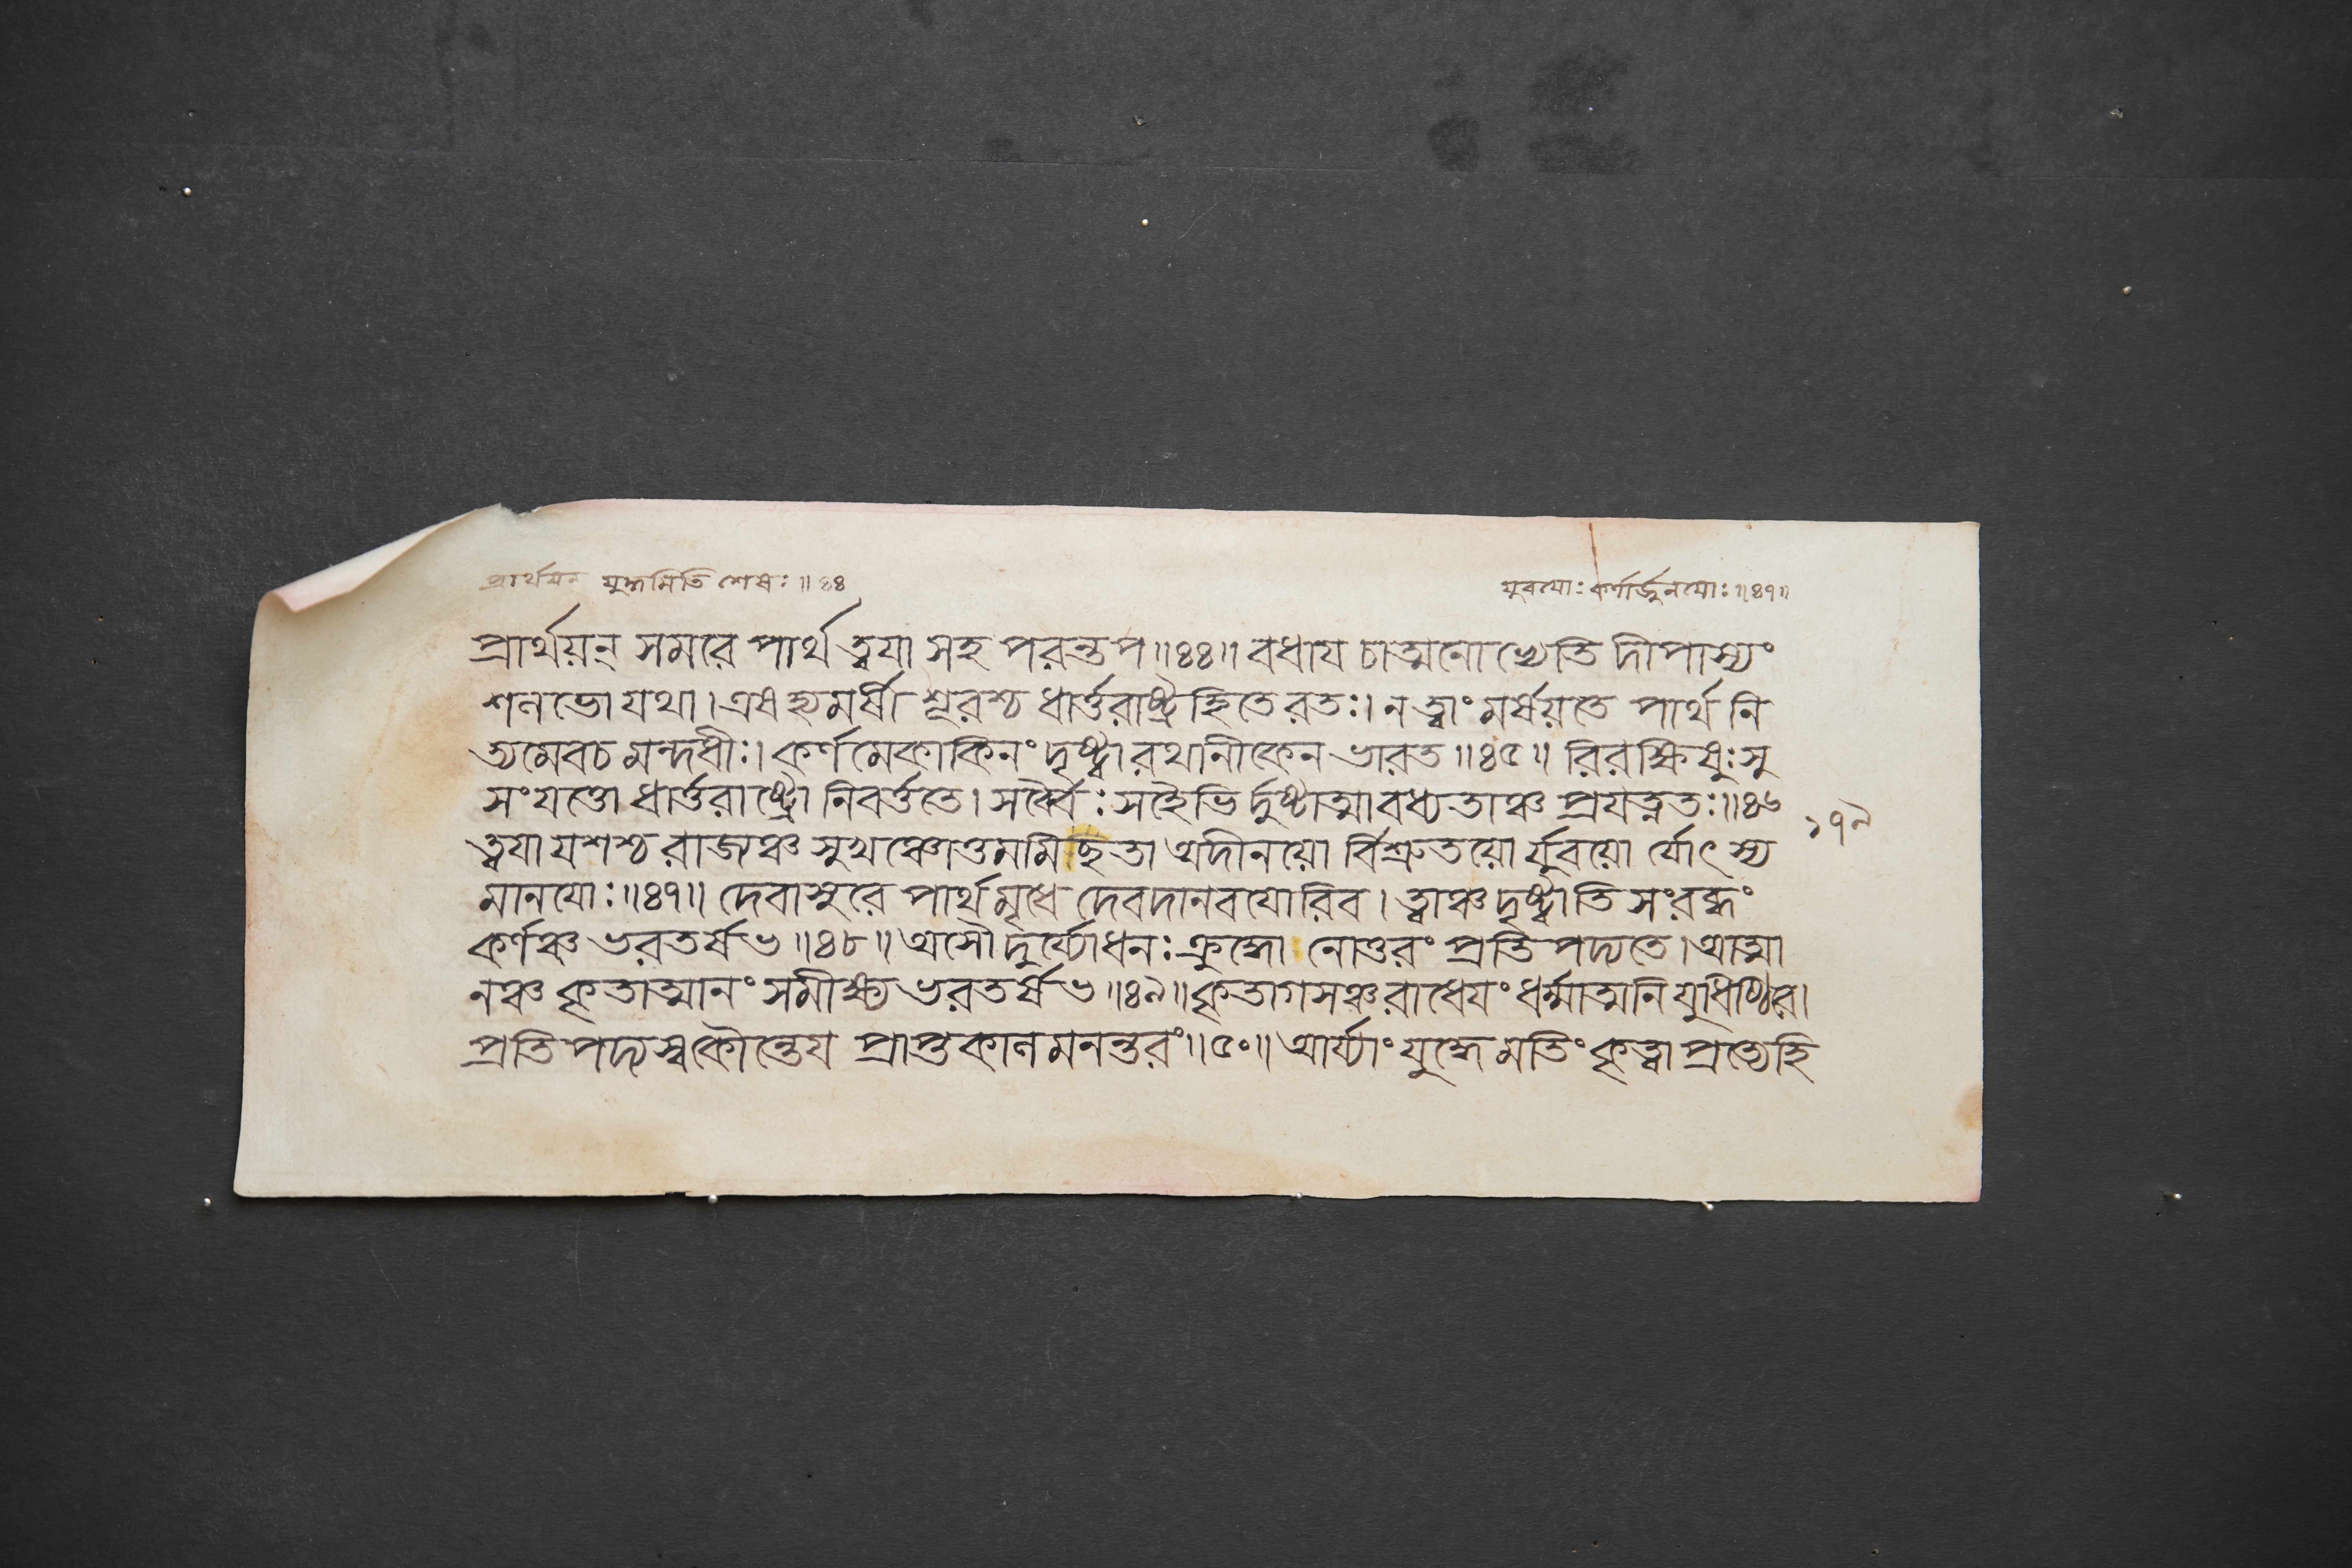 প্রার্থয়ন্ যুদ্ধমিতি শেষঃ॥৪৪
যুবযোঃ কর্ণার্জুনযোঃ॥৪৭॥
প্রার্থয়ন্ সমরে পার্থ ত্বযা সহ পরন্তপ॥৪৪॥ বধায চাত্মনো ভ্যেতি দীপাস্যং
শলভো যথা। এষ হ্যমর্ষী শূরশ্চ ধার্ত্তরাষ্ট্রহিতে রতঃ। ন ত্বাং মর্ষয়তে পার্থ নি
ত্যমেবচ মন্দধীঃ। কর্ণমেকাকিনং দৃষ্ট্বা রথানীকেন ভারত॥৪৫॥ রিরক্ষিষুঃ সু
সংযত্তো ধার্ত্তরাষ্ট্রো নিবর্ত্ততে। সর্ব্বৈঃ সহৈভির্দুষ্টাত্মা বধ্যতাঞ্চ প্রযত্নতঃ॥৪৬
ত্বযা যশশ্চ রাজ্যঞ্চ সুখঞ্চোত্তমমিছতা অদীনয়ো র্বিশ্রুতয়ো র্যুবয়ো র্যোৎস্য
১৭৯
মানযোঃ॥৪৭॥ দেবাসুরে পার্থ মৃধে দেবদানবযোরিব। ত্বাঞ্চ দৃষ্ট্বাতি সংরব্ধং
কর্ণঞ্চ ভরতর্ষভ॥৪৮॥ অসৌ দুর্য্যোধনঃ ক্রুদ্ধো নোত্তরং প্রতিপদ্যতে। আত্মা
নঞ্চ কৃতাত্মানং সমীক্ষ্য ভরতর্ষভ॥৪৯॥ কৃতাগসঞ্চ রাধেযং ধর্ম্মাত্মনি যুধিষ্ঠির।
প্রতিপদ্যস্ব কৌন্তেয প্রাপ্তকালমনন্তরং॥৫০॥ আর্য্যাং যুদ্ধে মতিং কৃত্বা প্রত্যেহি